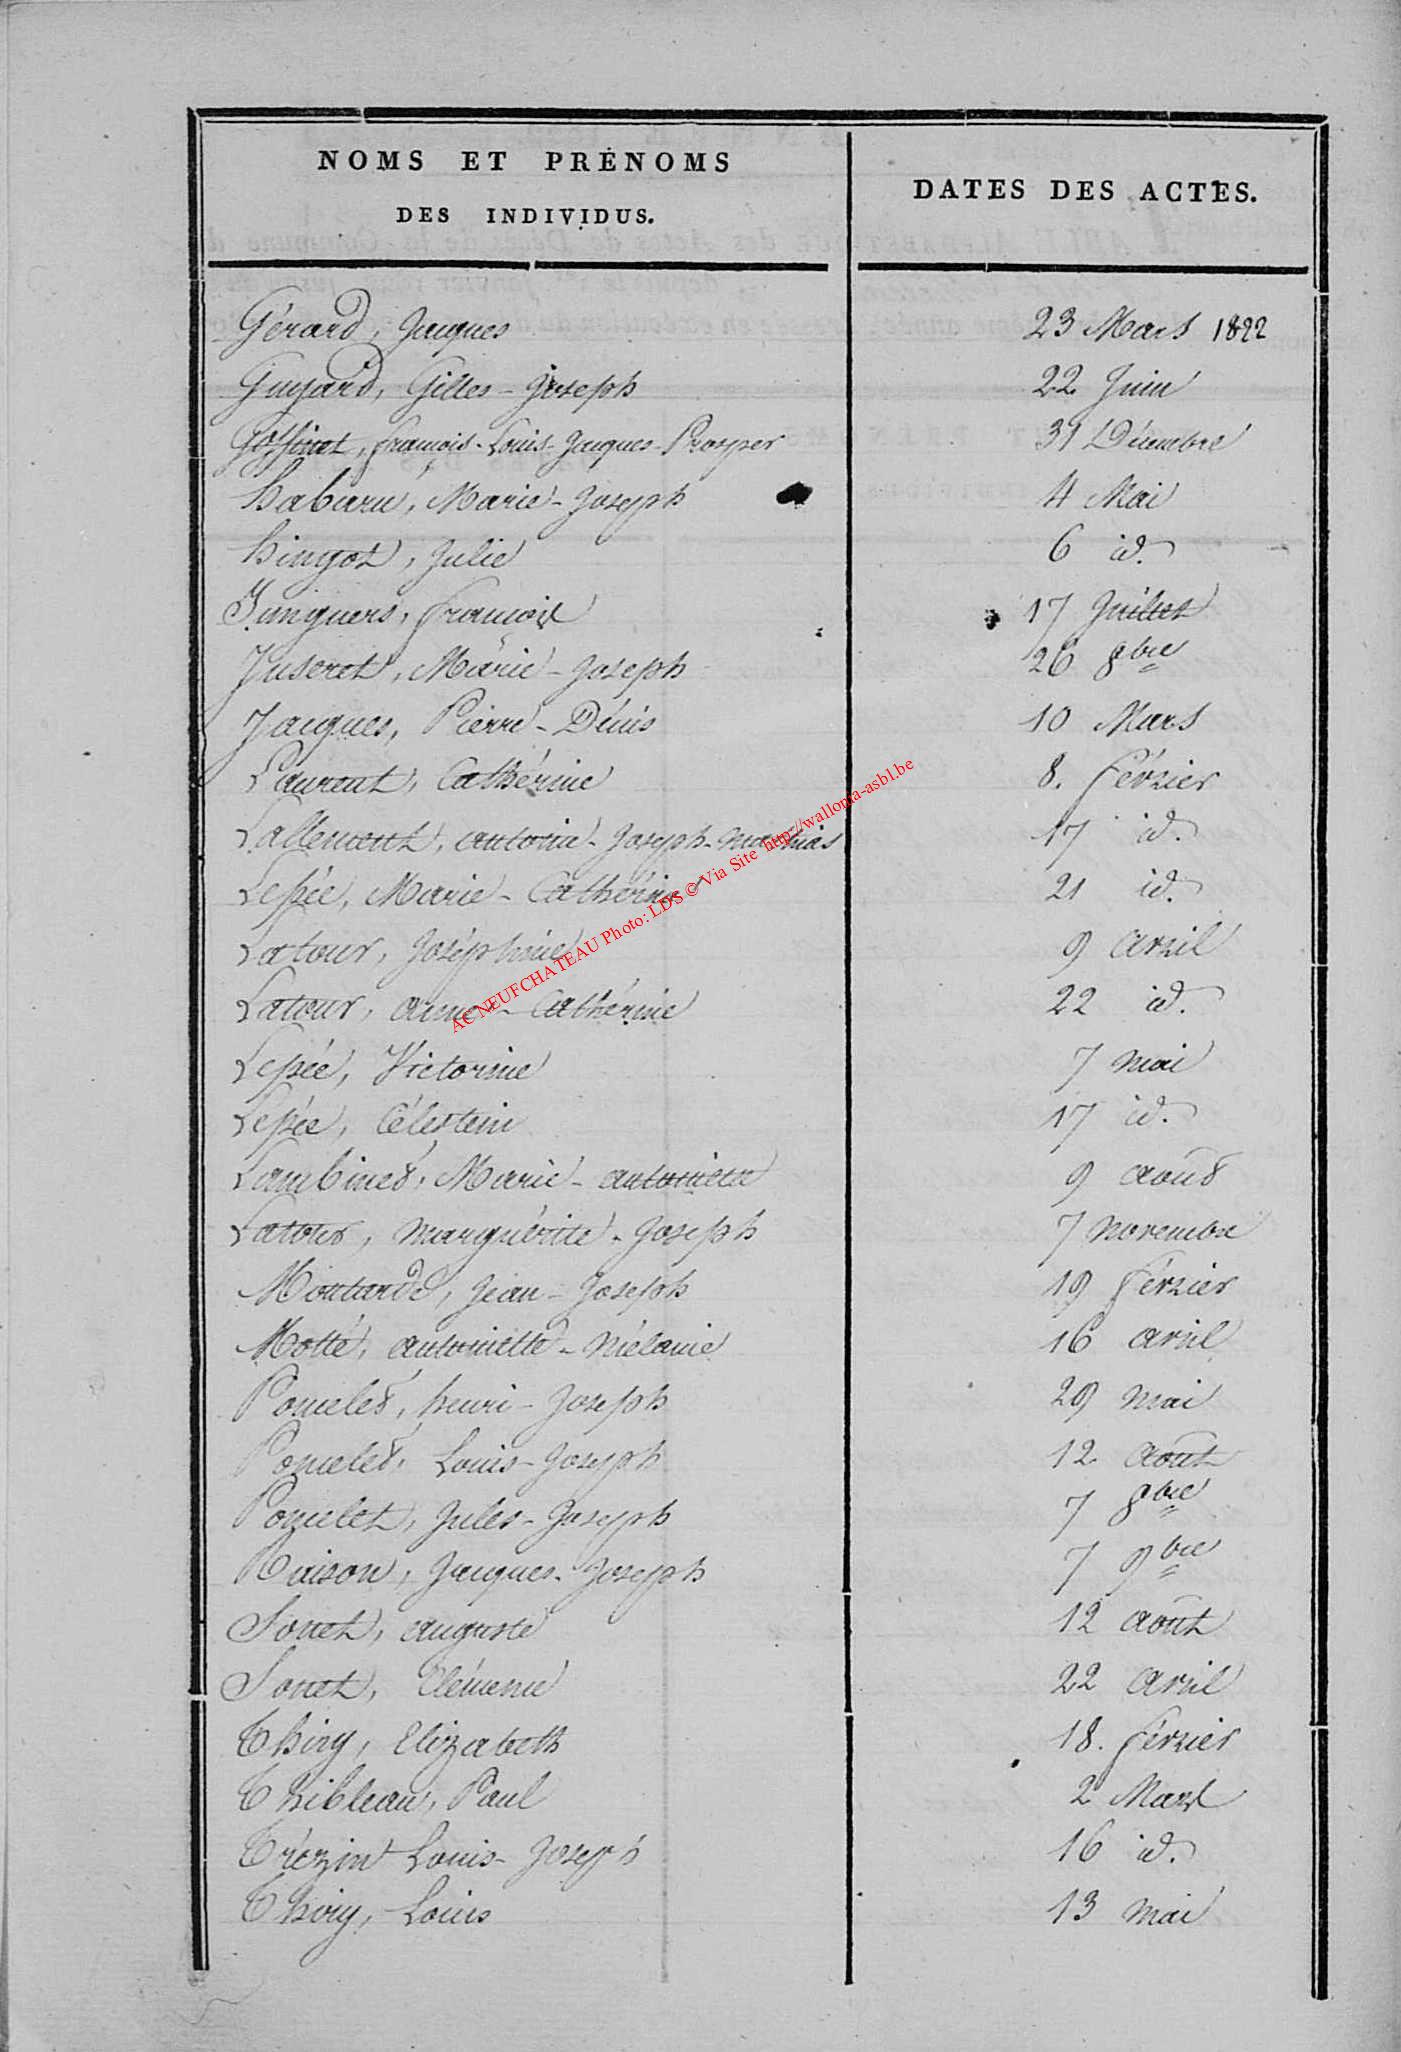 NOMS ET PRÉNOMS
DES INDIVIDUS.
DATES DES ACTES.
Gérard, Jacques 23 Mars 1822
Guyard, Gilles-Joseph 22 Juin
Goffinet, françois-Louis-Jacques-Prosper 31 Décembre
habaru, Marie-Joseph 4 Mai
hingot, Julie 6 id.
Junguers, françois 17 Juillet
Juseret, Marie-Joseph 26 8bre
Jacques, Pierre-Dénis 10 Mars
Laurent, Cathérine 8. février
Lallement, antoine-Joseph-mathias 17 id.
Lepée, Marie-Cathérine 21 id.
Latour, Joséphine 9 avril
Latour, anne-Cathérine 22 id.
Lepée, Victorine 7 mai
Lepée, Célestin 17 id.
Lambinet, Marie-antoinette 9 août
Latour, marguérite-Joseph 7 novembre
Moutarde, Jean-Joseph 19 février
Motté, antoinette-mélanie 16 avril
Poncelet, henri-Joseph 29 mai
Poncelet, Louis-Joseph 12 août
Poncelet, Jules-Joseph 7 8bre
Raison, Jacques-Joseph 7 9bre
Sonet, auguste 12 août
Sonet, Clémence 22 avril
Thiry, Elizabeth 18. février
Thibleau, Paul 2 Mars
Trézin Louis-Joseph 16 id.
Thiry, Louis 13 mai
AC NEUFCHATEAU Photo: LDS © Via Site http://wallonia-asbl.be